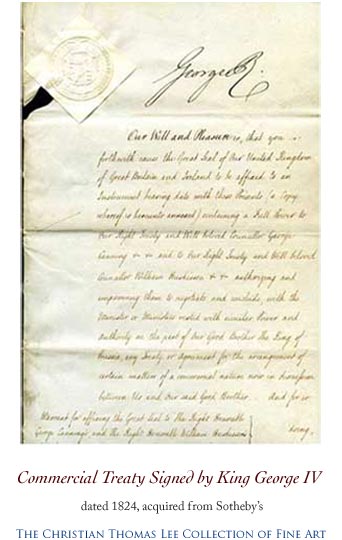 George R.
Our Will and Pleasure is, that you
forthwith cause the Great Seal of Our United Kingdom
of Great Britain and Ireland to be affixed to an
Instrument bearing date with these Presents (a Copy
whereof is hereunto annexed) containing a Full Power to
Our Right Trusty and Well beloved Councillor George
Canning & & and to Our Right Trusty and Well beloved
Councillor William Huskisson & & authorizing and
empowering them to negotiate and conclude, with the
Minister or Ministers vested with similar Power and
Authority on the part of Our Good Brother The King of
Prussia, any Treaty or Agreement for the arrangement of
certain matters of a commercial nature now in discussion
between Us and Our said Good Brother. And for so
Warrant for affixing the Great Seal to The Right Honorable
doing,
George Canning and the Right Honorable William Huskisson
Commercial Treaty Signed by King George IV
dated 1824, acquired from Sotheby's
THE CHRISTIAN THOMAS LEE COLLECTION OF FINE ART